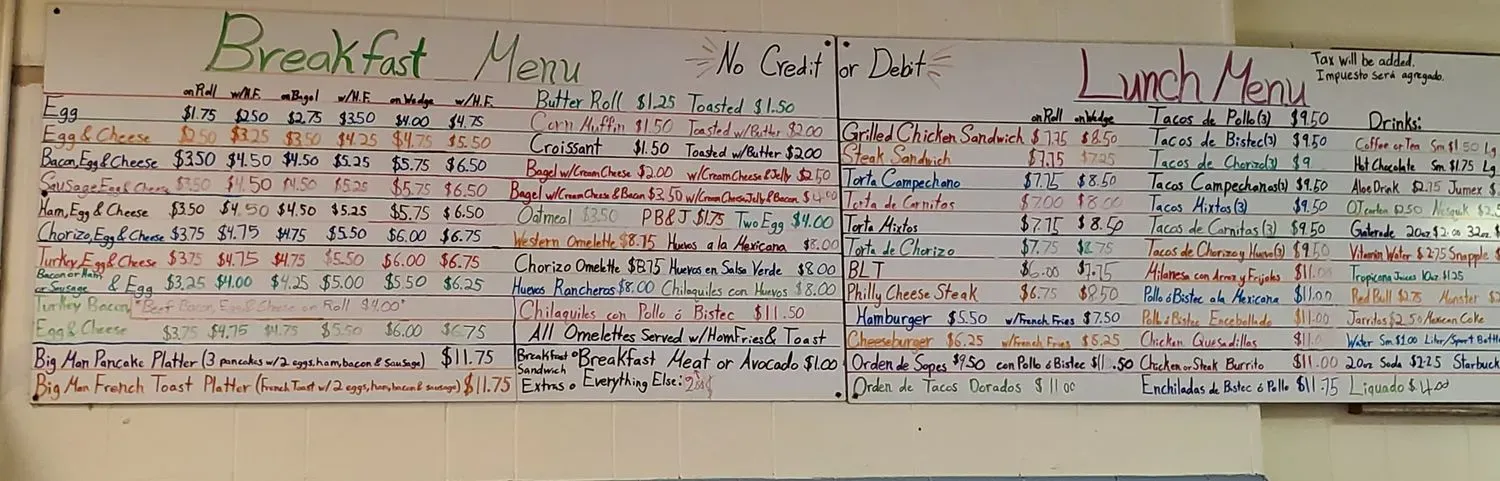 Breakfast Menu
No Credit or Debit
on Roll w/H.F. on Bagel w/H.F. on Wedge w/H.F.
Egg $1.75 $2.50 $2.75 $3.50 $4.00 $4.75
Egg & Cheese $2.50 $3.25 $3.50 $4.25 $4.75 $5.50
Bacon, Egg & Cheese $3.50 $4.50 $4.50 $5.25 $5.75 $6.50
Sausage Egg & Cheese $3.50 $4.50 $4.50 $5.25 $5.75 $6.50
Ham, Egg & Cheese $3.50 $4.50 $4.50 $5.25 $5.75 $6.50
Chorizo, Egg & Cheese $3.75 $4.75 $4.75 $5.50 $6.00 $6.75
Turkey, Egg & Cheese $3.75 $4.75 $4.75 $5.50 $6.00 $6.75
Bacon or Ham or Sausage & Egg $3.25 $4.00 $4.25 $5.00 $5.50 $6.25
Turkey Bacon "Beef Bacon, Egg & Cheese on Roll $4.00"
Egg & Cheese $3.75 $4.75 $4.75 $5.50 $6.00 $6.75
Big Man Pancake Platter (3 pancakes w/2 eggs, ham, bacon & sausage) $11.75
Big Man French Toast Platter (French Toast w/2 eggs, ham, bacon & sausage) $11.75
Butter Roll $1.25 Toasted $1.50
Corn Muffin $1.50 Toasted w/Butter $2.00
Croissant $1.50 Toasted w/Butter $2.00
Bagel w/Cream Cheese $2.00 w/Cream Cheese & Jelly $2.50
Bagel w/Cream Cheese & Bacon $3.50 w/Cream Cheese, Jelly & Bacon
Oatmeal $3.50 PB&J $1.75 Two Egg $4.00
Western Omelette $8.75 Huevos a la Mexicana $8.00
Chorizo Omelette $8.75 Huevos en Salsa Verde $8.00
Huevos Rancheros $8.00 Chilaquiles con Huevos $8.00
Chilaquiles con Pollo ó Bistec $11.50
All Omelettes Served w/HomFries & Toast
Breakfast Sandwich Extras
Breakfast Meat or Avocado $1.00
Everything Else:
Lunch Menu
Tax will be added.
Impuesto será agregado.
on Roll on Wedge
Grilled Chicken Sandwich $7.75 $8.50
Steak Sandwich $7.75 $7.25
Torta Campechano $7.75 $8.50
Torta de Carnitas $7.00 $8.00
Torta Mixtos $7.75 $8.50
Torta de Chorizo $7.75 $8.75
BLT $6.00 $7.75
Philly Cheese Steak $6.75 $8.50
Hamburger $5.50 w/French Fries $7.50
Cheeseburger $6.25 w/French Fries
Orden de Sopes $9.50 con Pollo ó Bistec $11.50
Orden de Tacos Dorados $11.00
Tacos de Pollo (3) $9.50
Tacos de Bistec (3) $9.50
Tacos de Chorizo (3) $9
Tacos Campechanas (3) $9.50
Tacos Mixtos (3) $9.50
Tacos de Carnitas (3) $9.50
Tacos de Chorizo y Huevo (3) $9.50
Milanesa con Arroz y Frijoles $11.00
Pollo ó Bistec a la Mexicana $11.00
Pollo ó Bistec Encebollado $11.00
Chicken Quesadillas
Chicken or Steak Burrito $11.00
Enchiladas de Bistec ó Pollo $11.75
Drinks:
Coffee or Tea Sm $1.50 Lg
Hot Chocolate Sm $1.75 Lg
Aloe Drink $2.75 Jumex
OJ carton $2.50 Nesquik
Gatorade 20oz $2.00 32oz
Vitamin Water $2.75 Snapple
Tropicana Juices 10oz $1.25
Red Bull $2.75 Monster
Jarritos $2.50 Mexican Coke
Water Sm $1.00 Liter/Sport Bottle
20oz Soda $2.25 Starbuck
Liquado $4.00